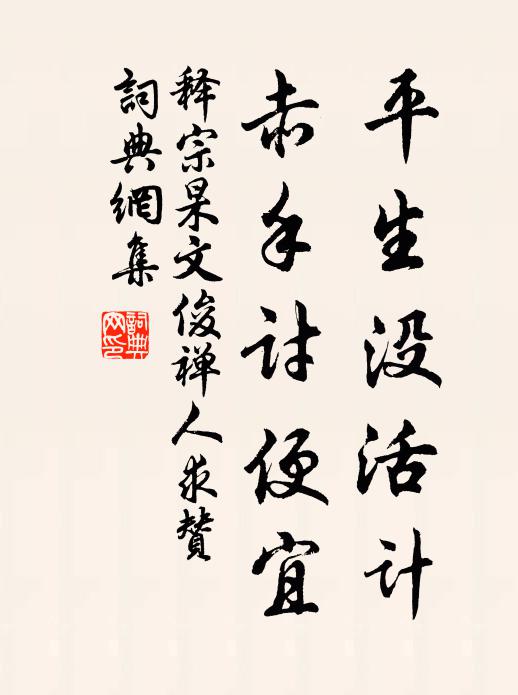 平生没活计
赤手討便宜
释宗杲文俊禅人求贊
詞典網集
詞典網印